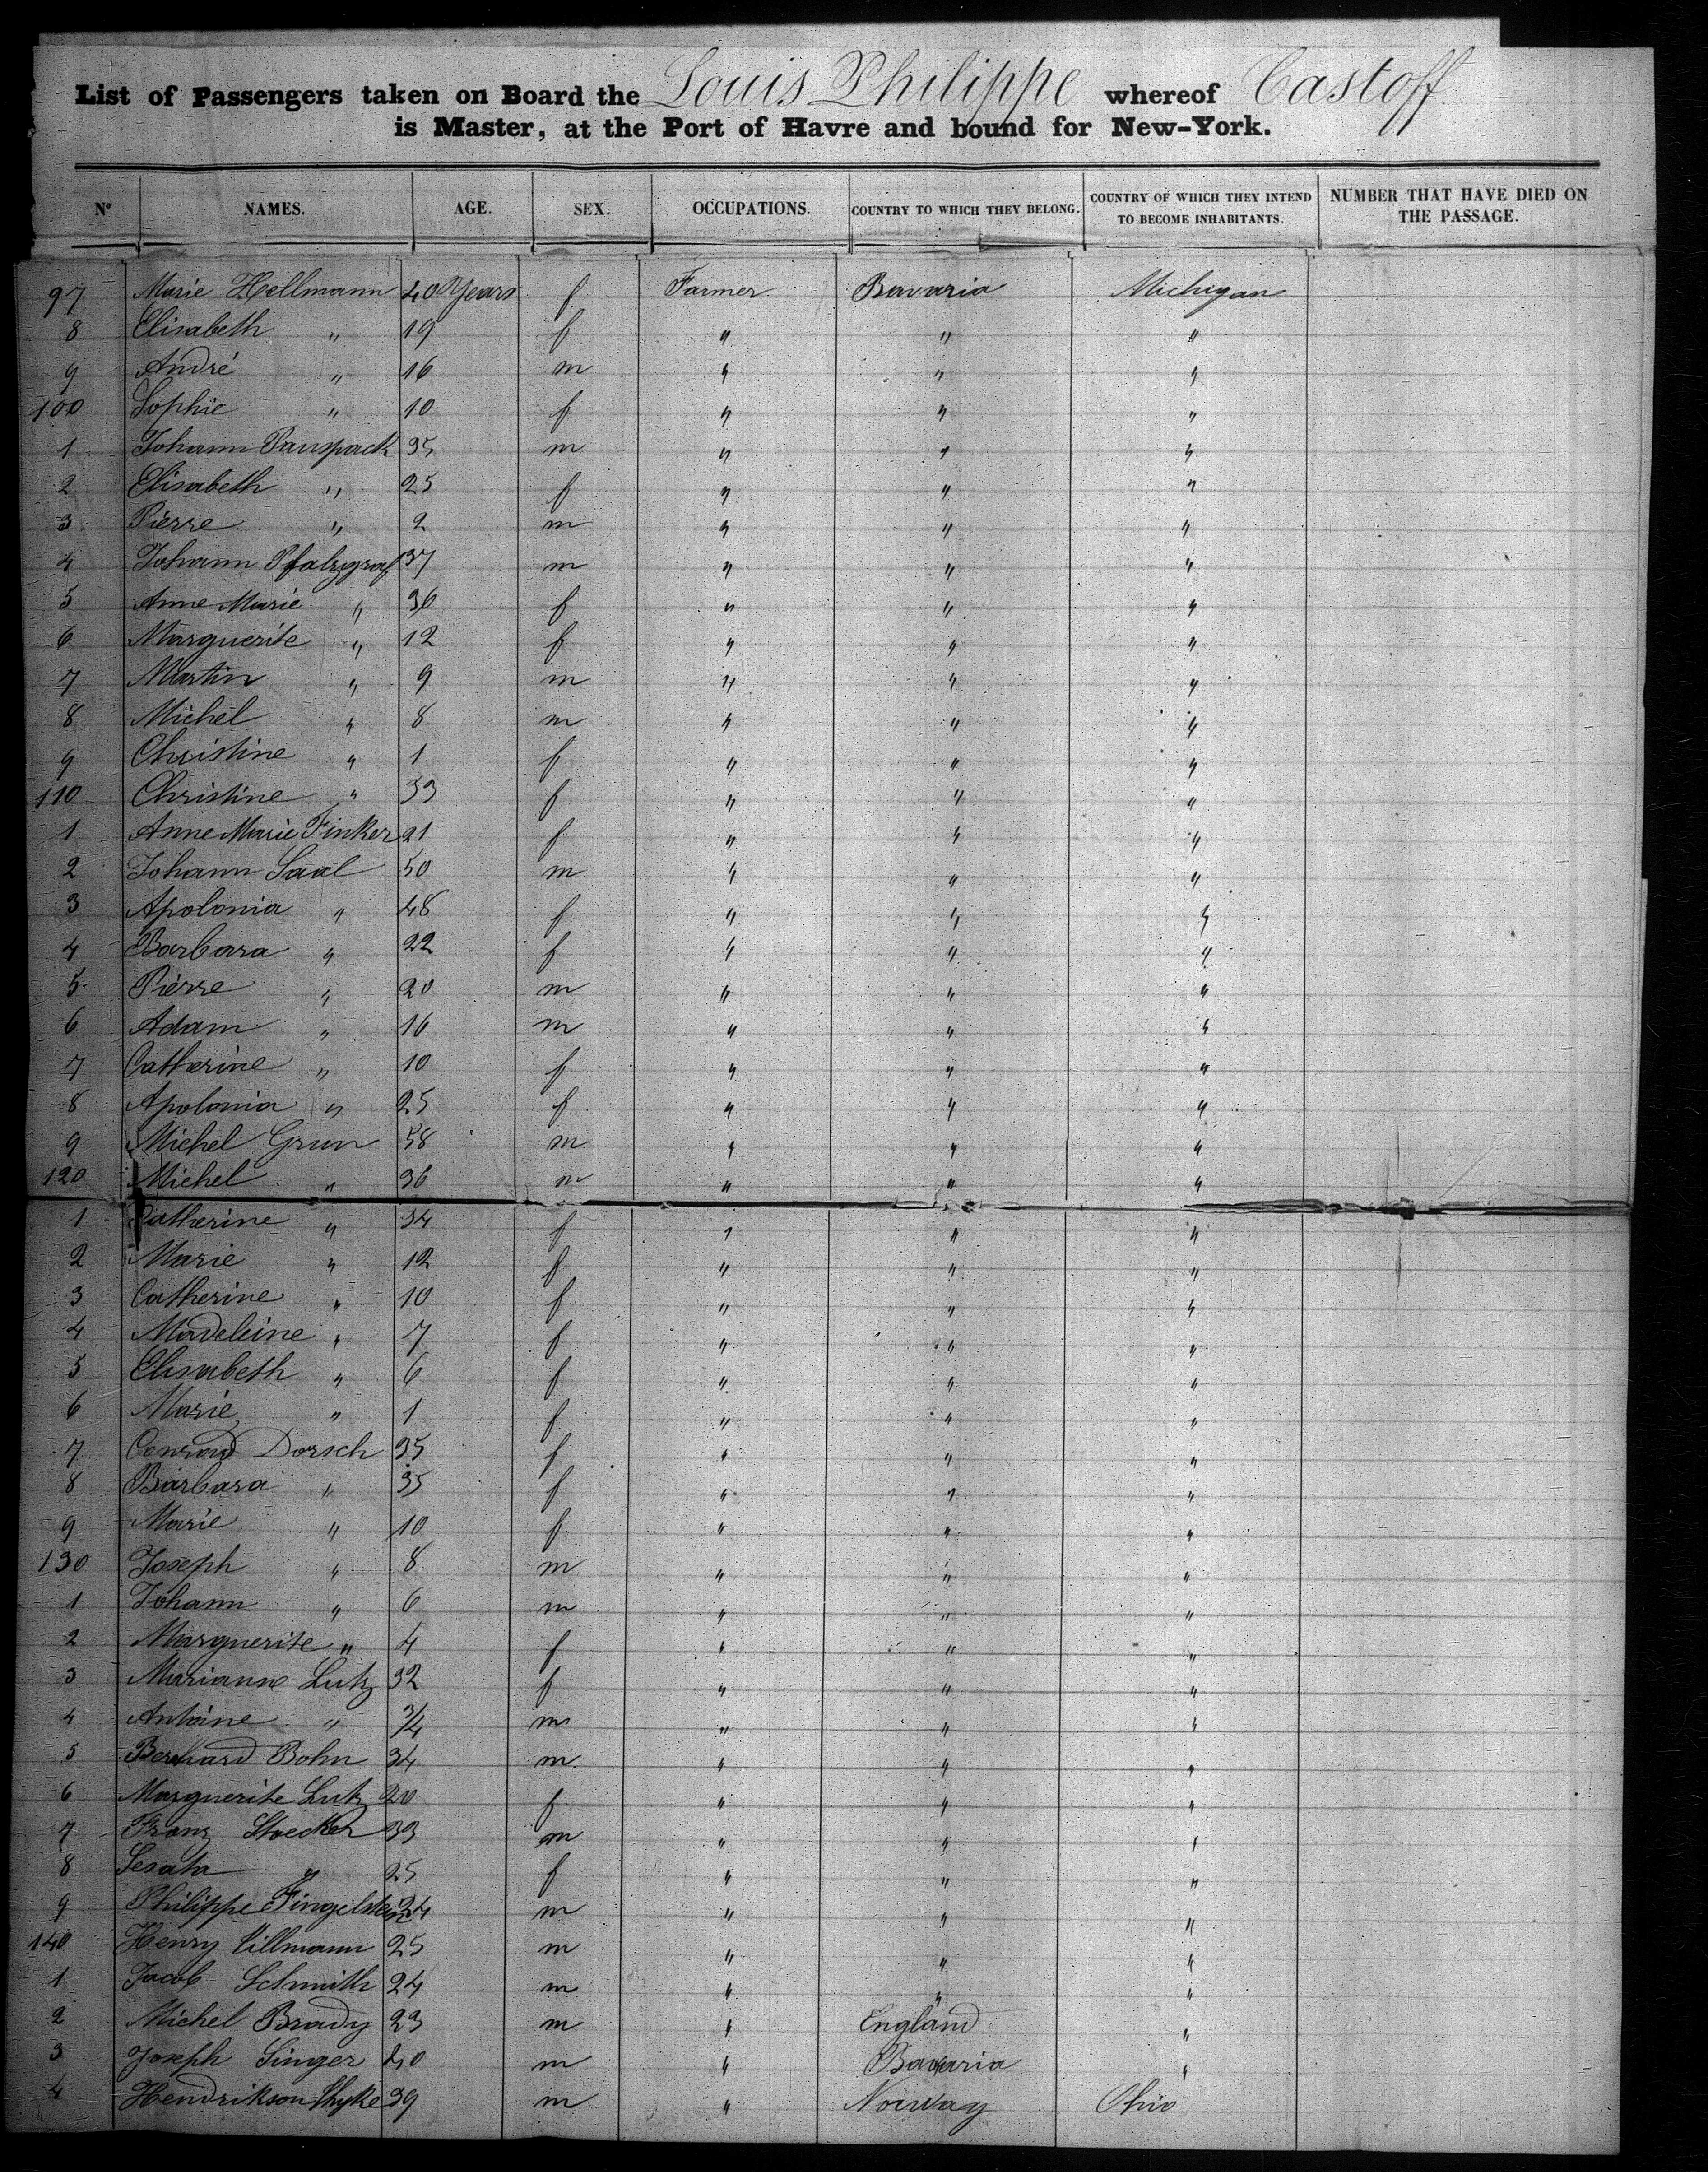 List of Passengers taken on Board the Louis Philippe whereof Castoff
is Master, at the Port of Havre and bound for New-York.
Nº NAMES. AGE. SEX. OCCUPATIONS. COUNTRY TO WHICH THEY BELONG. COUNTRY OF WHICH THEY INTEND TO BECOME INHABITANTS. NUMBER THAT HAVE DIED ON THE PASSAGE.
97 Marie Hellmann 40 Years f Farmer Bavaria Michigan
8 Elisabeth " 19 f " " "
9 André " 16 m " " "
100 Sophie " 10 f " " "
1 Johann Pauspack 35 m " " "
2 Elisabeth " 25 f " " "
3 Pierre " 2 m " " "
4 Johann Pfalzgraf 37 m " " "
5 Anne Marie " 36 f " " "
6 Marguerite " 12 f " " "
7 Martin " 9 m " " "
8 Michel " 8 m " " "
9 Christine " 1 f " " "
110 Christine " 33 f " " "
1 Anne Marie Finker 21 f " " "
2 Johann Saal 50 m " " "
3 Apolonia " 48 f " " "
4 Barbara " 22 f " " "
5 Pierre " 20 m " " "
6 Adam " 16 m " " "
7 Catherine " 10 f " " "
8 Apolonia " 25 f " " "
9 Michel Grun 58 m " " "
120 Michel " 36 m " " "
1 Catherine " 34 f " " "
2 Marie " 12 f " " "
3 Catherine " 10 f " " "
4 Madeleine " 7 f " " "
5 Elisabeth " 6 f " " "
6 Marie " 1 f " " "
7 Conrad Dorsch 35 f " " "
8 Barbara " 35 f " " "
9 Marie " 10 f " " "
130 Joseph " 8 m " " "
1 Johann " 6 m " " "
2 Marguerite " 4 f " " "
3 Marianne Lutz 32 f " " "
4 Antoine " 3/4 m " " "
5 Bernhard Bohn 34 m " " "
6 Marguerite Lutz 20 f " " "
7 Franz Stoecker 33 m " " "
8 " 25 f " " "
9 Philippe Fingelstein 24 m " " "
140 Henry Sillmann 25 m " " "
1 Jacob Schmith 24 m " " "
2 Michel Brady 23 m " England "
3 Joseph Singer 40 m " Bavaria "
4 Hendrikson 39 m " Norway Ohio